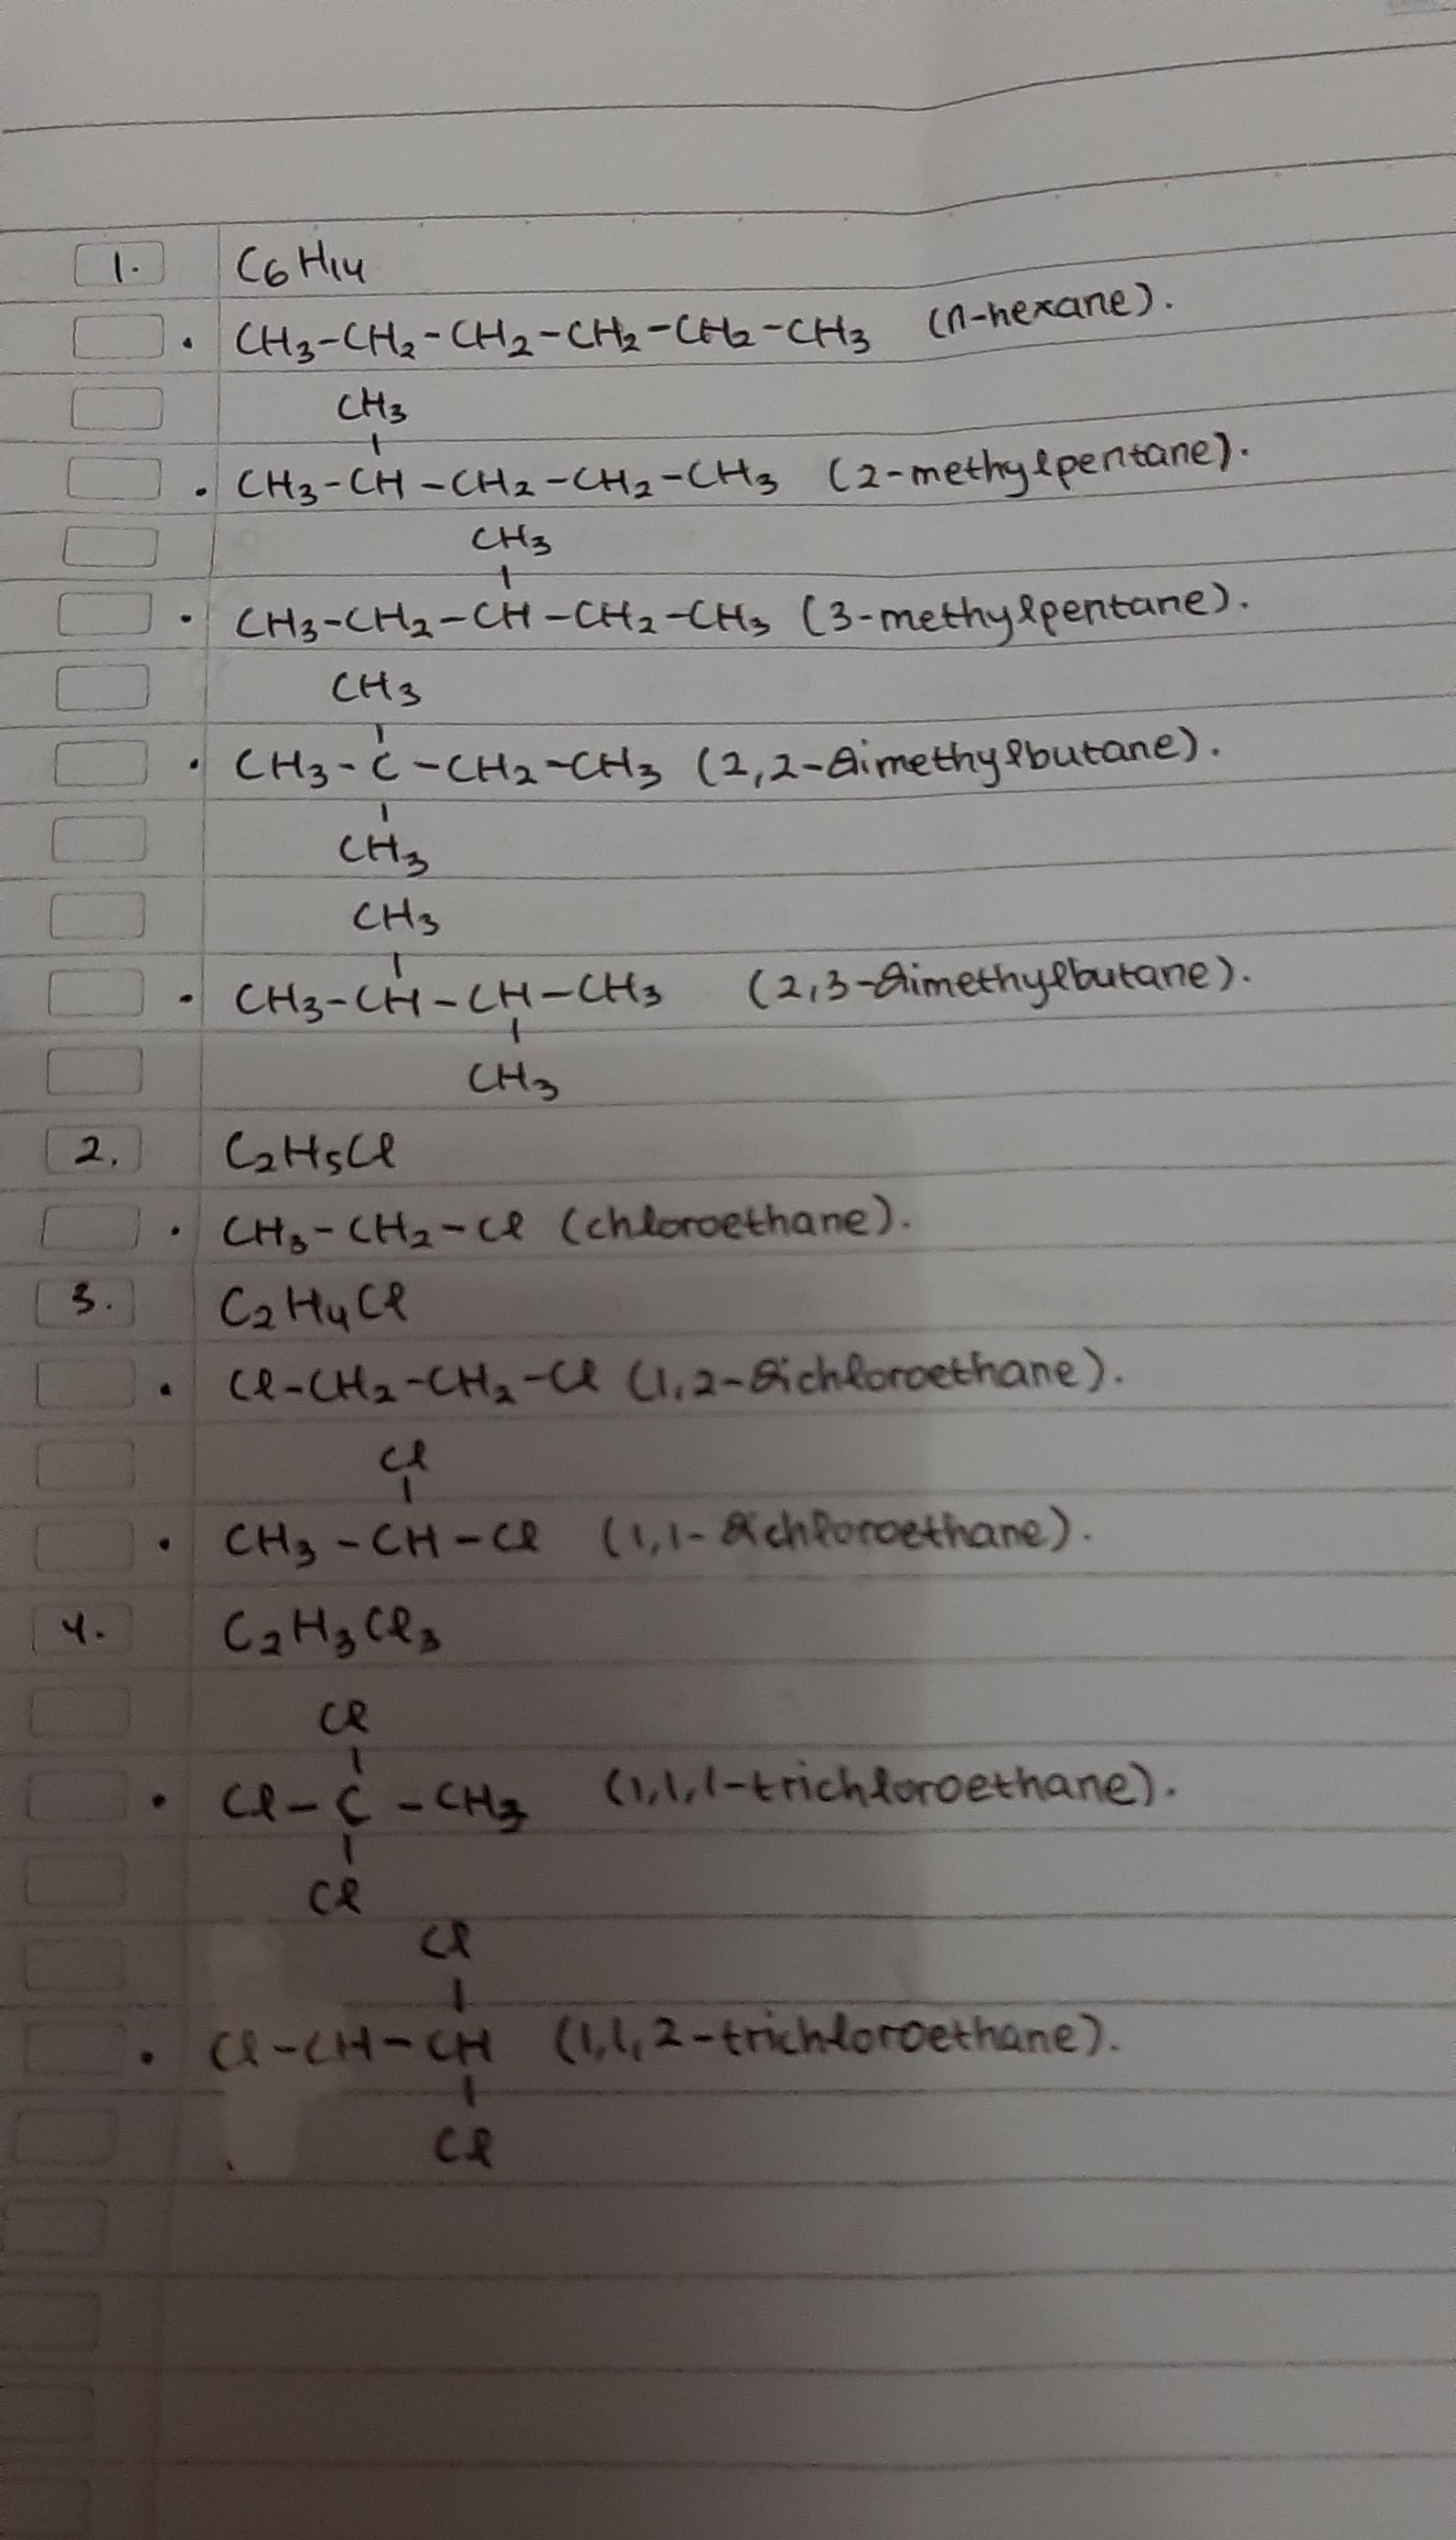 1. C6H14
• CH3-CH2-CH2-CH2-CH2-CH3 (n-hexane).
CH3
• CH3-CH-CH2-CH2-CH3 (2-methylpentane).
CH3
• CH3-CH2-CH-CH2-CH3 (3-methylpentane).
CH3
• CH3-C-CH2-CH3 (2,2-dimethylbutane).
CH3
CH3
• CH3-CH-CH-CH3 (2,3-dimethylbutane).
CH3
2. C2H5Cl
• CH3-CH2-Cl (chloroethane).
3. C2H4Cl
• Cl-CH2-CH2-Cl (1,2-dichloroethane).
Cl
• CH3-CH-Cl (1,1-dichloroethane).
4. C2H3Cl3
Cl
• Cl-C-CH3 (1,1,1-trichloroethane).
Cl
Cl
• Cl-CH-CH (1,1,2-trichloroethane).
Cl